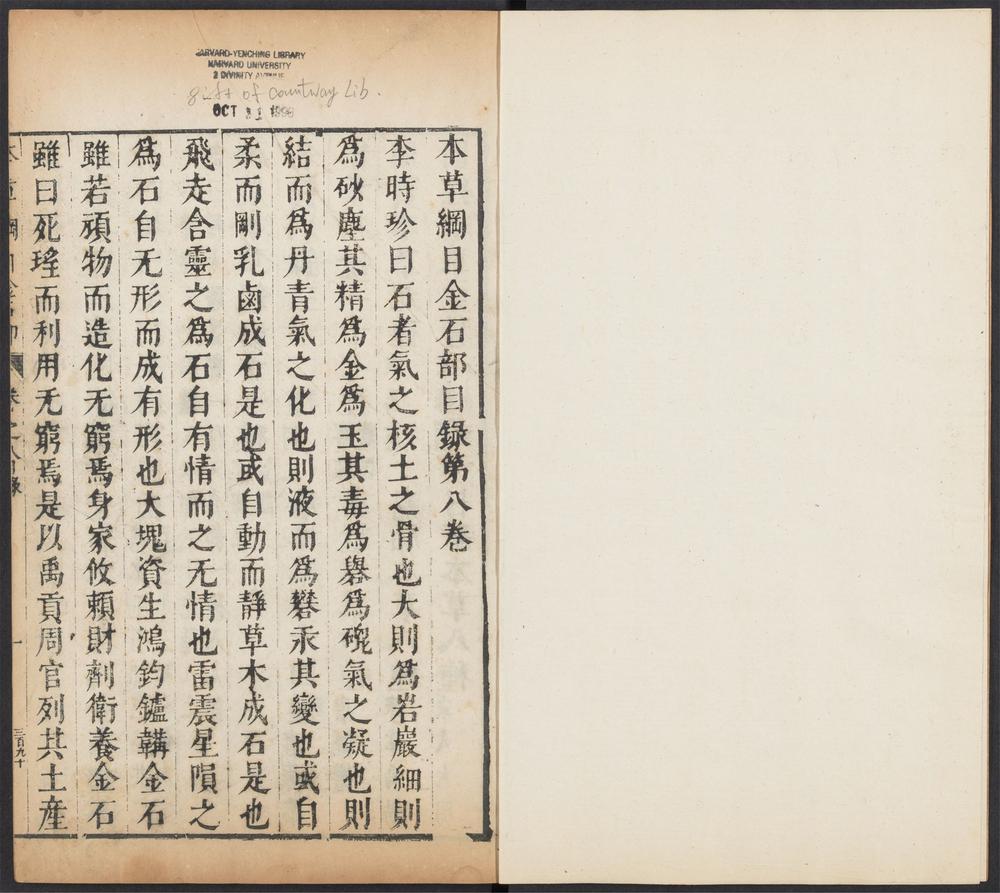 HARVARD-YENCHING LIBRARY
HARVARD UNIVERSITY
2 DIVINITY AVENUE
gift of Countway Lib.
OCT
本草綱目金石部目錄第八卷
李時珍曰石者氣之核土之骨也大則爲岩巖細則
爲砂塵其精爲金爲玉其毒爲礜爲砒氣之凝也則
結而爲丹青氣之化也則液而爲礬汞其變也或自
柔而剛乳鹵成石是也或自動而靜草木成石是也
飛走含靈之爲石自有情而之无情也雷震星隕之
爲石自无形而成有形也大塊資生鴻鈞鑪鞲金石
雖若頑物而造化无窮焉身家攸賴財劑衛養金石
雖曰死瑤而利用无窮焉是以禹貢周官列其土產
卷之八目錄
一
三百九十